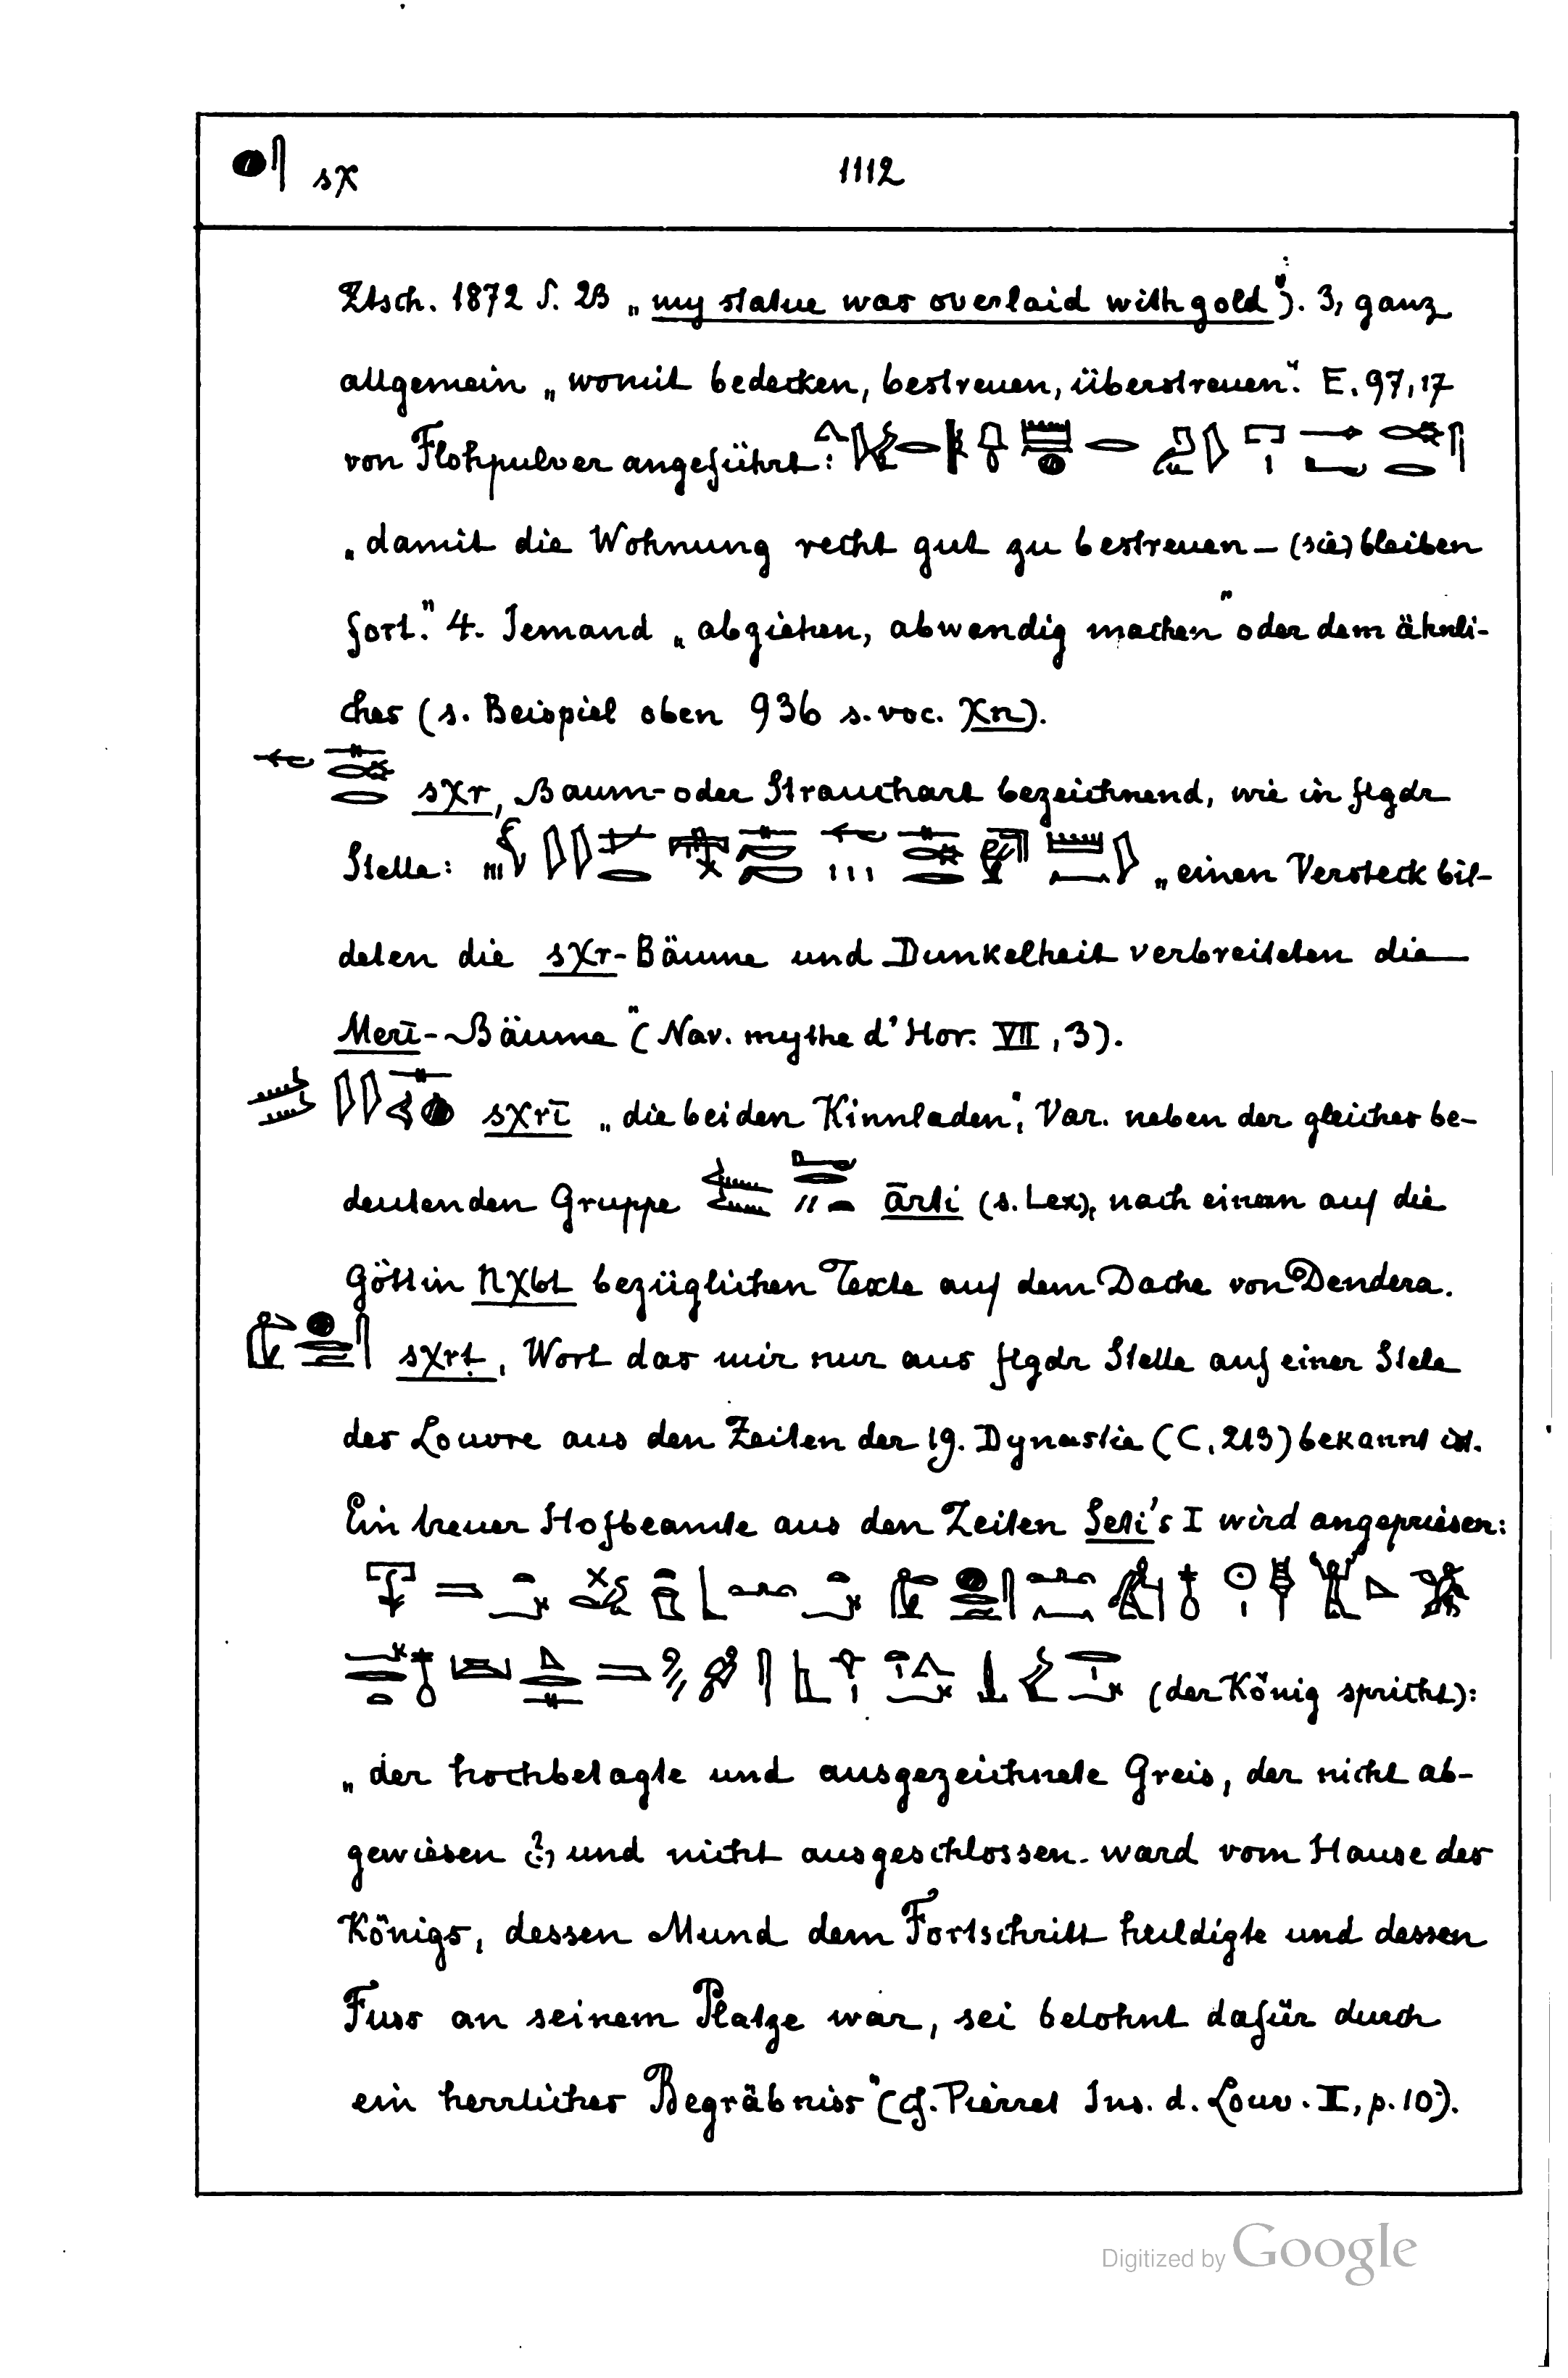 sχ 1112
Ztsch. 1872 S. 23 „my statue was overlaid with gold"). 3, ganz
allgemein „womit bedecken, bestreuen, überstreuen". E. 97,17
von Flohpulver angeführt:
„damit die Wohnung recht gut zu bestreuen – (sie) bleiben
fort." 4. Jemand „abziehen, abwendig machen" oder dem ähnli-
ches (s. Beispiel oben 936 s. voc. χn).
sχr, Baum- oder Strauchart bezeichnend, wie in flgdr
Stelle: „einen Versteck bil-
deten die sχr-Bäume und Dunkelheit verbreiteten die
Merī-Bäume" (Nav. mythe d'Hor. VII, 3).
sχrī „die beiden Kinnladen", Var. neben der gleiches be-
deutenden Gruppe ārti (s. Lex), nach einem auf die
Göttin Nχbt bezüglichen Texte auf dem Dache von Dendera.
sχrṭ, Wort das mir nur aus flgdr Stelle auf einer Stele
des Louvre aus den Zeiten der 19. Dynastie (C, 213) bekannt ist.
Ein treuer Hofbeamte aus den Zeiten Seti's I wird angepriesen:
(der König spricht):
„der hochbetagte und ausgezeichnete Greis, der nicht ab-
gewiesen (?) und nicht ausgeschlossen ward vom Hause des
Königs, dessen Mund dem Fortschritt huldigte und dessen
Fuss an seinem Platze war, sei belohnt dafür durch
ein herrliches Begräbniss" (cf. Pierret Ins. d. Louv. I, p. 10).
Digitized by Google